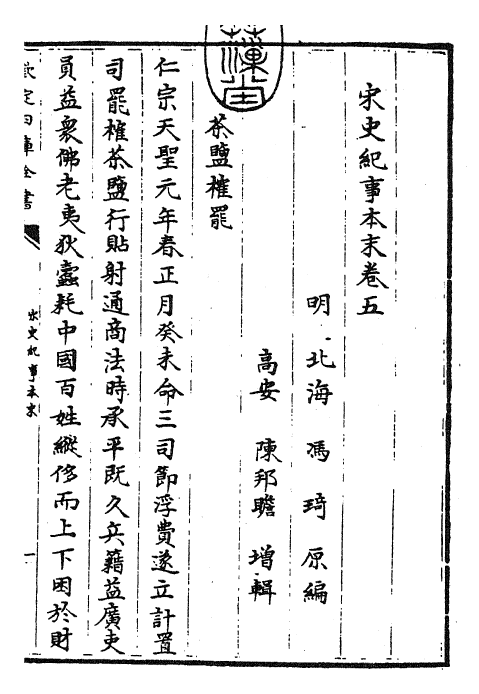 宋史紀事本末卷五
明 北海 馮琦 原編
高安 陳邦瞻 增輯
茶鹽榷罷
仁宗天聖元年春正月癸未命三司節浮費遂立計置
司罷榷茶鹽行貼射通商法時承平既久兵籍益廣吏
員益衆佛老夷狄蠹耗中國百姓縱侈而上下困於財
欽定四庫全書
宋史紀事本末
一